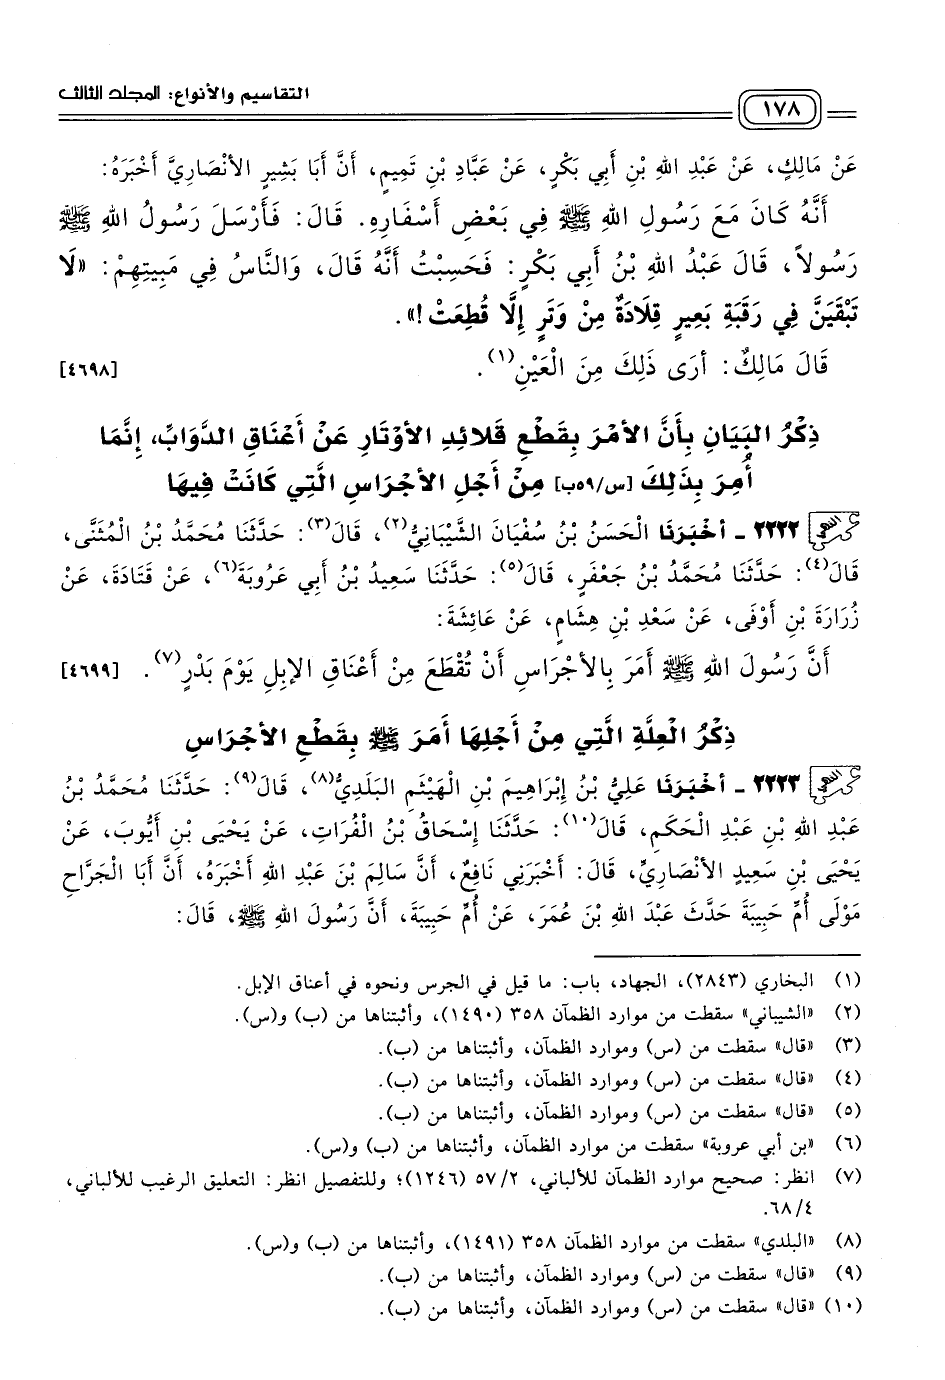 ١٧٨ التقاسيم والأنواع: المجلد الثالث
عَنْ مَالِكٍ، عَنْ عَبْدِ اللهِ بْنِ أَبِي بَكْرٍ، عَنْ عَبَّادِ بْنِ تَمِيمٍ، أَنَّ أَبَا بَشِيرٍ الأَنْصَارِيَّ أَخْبَرَهُ:
أَنَّهُ كَانَ مَعَ رَسُولِ اللهِ ﷺ فِي بَعْضِ أَسْفَارِهِ. قَالَ: فَأَرْسَلَ رَسُولُ اللهِ ﷺ
رَسُولاً، قَالَ عَبْدُ اللهِ بْنُ أَبِي بَكْرٍ: فَحَسِبْتُ أَنَّهُ قَالَ، وَالنَّاسُ فِي مَبِيتِهِمْ: «لَا
تَبْقَيَنَّ فِي رَقَبَةِ بَعِيرٍ قِلَادَةٌ مِنْ وَتَرٍ إِلَّا قُطِعَتْ!».
قَالَ مَالِكٌ: أَرَى ذَلِكَ مِنَ الْعَيْنِ(١). [٤٦٩٨]
ذِكْرُ البَيَانِ بِأَنَّ الأَمْرَ بِقَطْعِ قَلَائِدِ الأَوْتَارِ عَنْ أَعْنَاقِ الدَّوَابِّ، إِنَّمَا
أُمِرَ بِذَلِكَ [س/٥٩ب] مِنْ أَجْلِ الأَجْرَاسِ الَّتِي كَانَتْ فِيهَا
٢٢٢٢ - أَخْبَرَنَا الْحَسَنُ بْنُ سُفْيَانَ الشَّيْبَانِيُّ(٢)، قَالَ(٣): حَدَّثَنَا مُحَمَّدُ بْنُ الْمُثَنَّى،
قَالَ(٤): حَدَّثَنَا مُحَمَّدُ بْنُ جَعْفَرٍ، قَالَ(٥): حَدَّثَنَا سَعِيدُ بْنُ أَبِي عَرُوبَةَ(٦)، عَنْ قَتَادَةَ، عَنْ
زُرَارَةَ بْنِ أَوْفَى، عَنْ سَعْدِ بْنِ هِشَامٍ، عَنْ عَائِشَةَ:
أَنَّ رَسُولَ اللهِ ﷺ أَمَرَ بِالأَجْرَاسِ أَنْ تُقْطَعَ مِنْ أَعْنَاقِ الإِبِلِ يَوْمَ بَدْرٍ(٧). [٤٦٩٩]
ذِكْرُ الْعِلَّةِ الَّتِي مِنْ أَجْلِهَا أَمَرَ ﷺ بِقَطْعِ الأَجْرَاسِ
٢٢٢٣ - أَخْبَرَنَا عَلِيُّ بْنُ إِبْرَاهِيمَ بْنِ الْهَيْثَمِ البَلَدِيُّ(٨)، قَالَ(٩): حَدَّثَنَا مُحَمَّدُ بْنُ
عَبْدِ اللهِ بْنِ عَبْدِ الْحَكَمِ، قَالَ(١٠): حَدَّثَنَا إِسْحَاقُ بْنُ الْفُرَاتِ، عَنْ يَحْيَى بْنِ أَيُّوبَ، عَنْ
يَحْيَى بْنِ سَعِيدٍ الأَنْصَارِيِّ، قَالَ: أَخْبَرَنِي نَافِعٌ، أَنَّ سَالِمَ بْنَ عَبْدِ اللهِ أَخْبَرَهُ، أَنَّ أَبَا الْجَرَّاحِ
مَوْلَى أُمِّ حَبِيبَةَ حَدَّثَ عَبْدَ اللهِ بْنَ عُمَرَ، عَنْ أُمِّ حَبِيبَةَ، أَنَّ رَسُولَ اللهِ ﷺ، قَالَ:
(١) البخاري (٢٨٤٣)، الجهاد، باب: ما قيل في الجرس ونحوه في أعناق الإبل.
(٢) «الشيباني» سقطت من موارد الظمآن ٣٥٨ (١٤٩٠)، وأثبتناها من (ب) و(س).
(٣) «قال» سقطت من (س) وموارد الظمآن، وأثبتناها من (ب).
(٤) «قال» سقطت من (س) وموارد الظمآن، وأثبتناها من (ب).
(٥) «قال» سقطت من (س) وموارد الظمآن، وأثبتناها من (ب).
(٦) «بن أبي عروبة» سقطت من موارد الظمآن، وأثبتناها من (ب) و(س).
(٧) انظر: صحيح موارد الظمآن للألباني، ٥٧/٢ (١٢٤٦)؛ وللتفصيل انظر: التعليق الرغيب للألباني،
٦٨/٤.
(٨) «البلدي» سقطت من موارد الظمآن ٣٥٨ (١٤٩١)، وأثبتناها من (ب) و(س).
(٩) «قال» سقطت من (س) وموارد الظمآن، وأثبتناها من (ب).
(١٠) «قال» سقطت من (س) وموارد الظمآن، وأثبتناها من (ب).